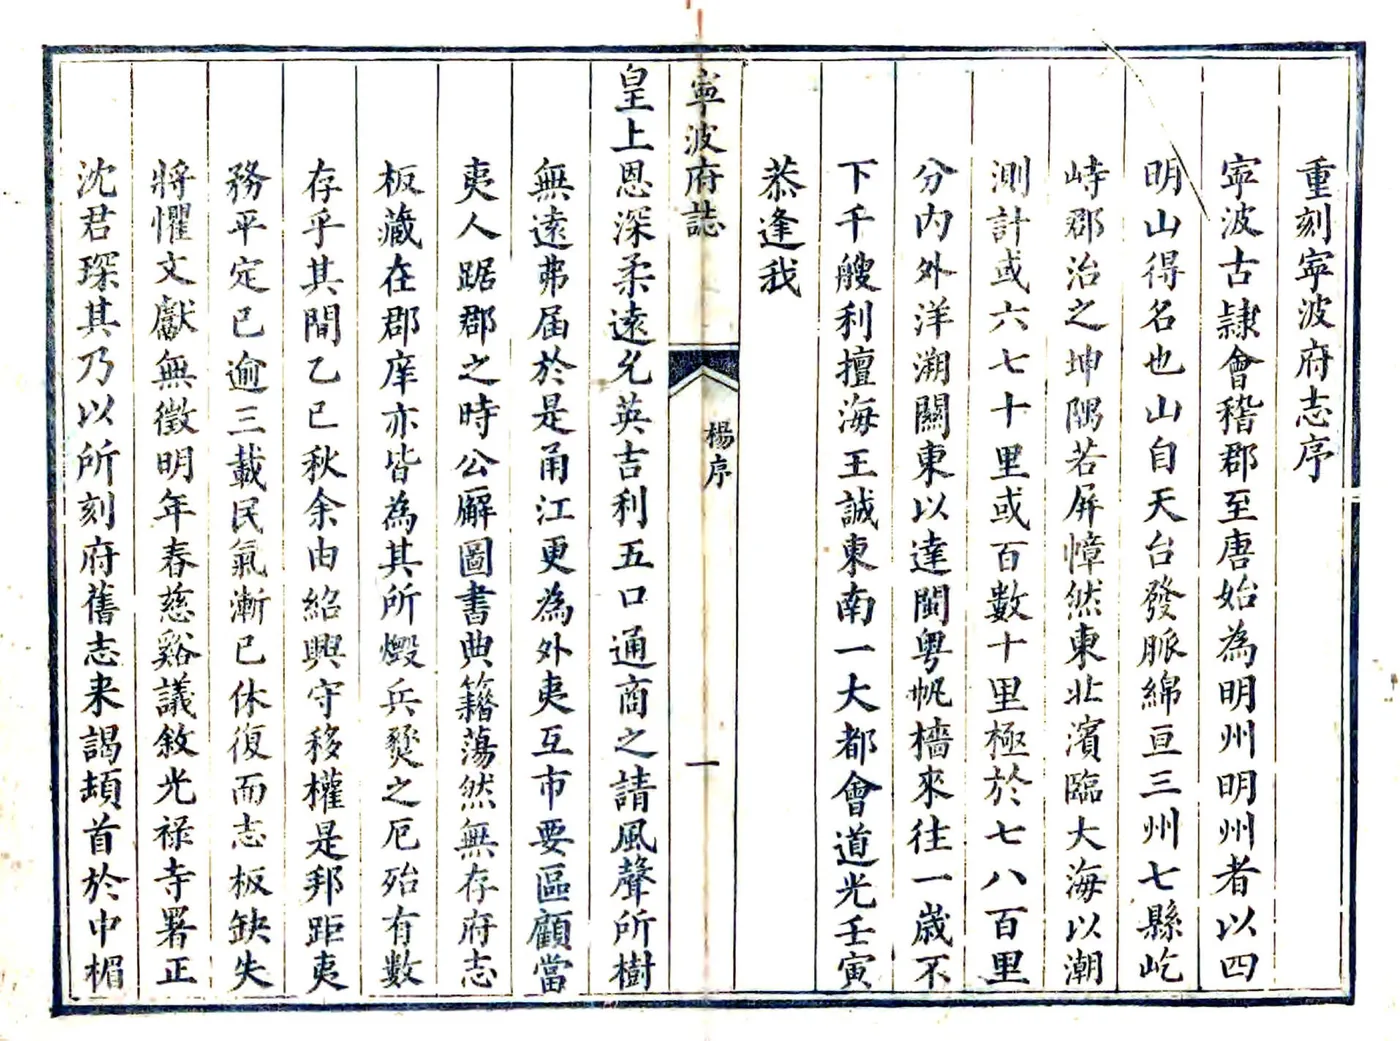 重刻寧波府志序
寧波古隷會稽郡至唐始為明州明州者以四
明山得名也山自天台發脈綿亘三州七縣屹
峙郡治之坤隅若屏幛然東北濱臨大海以潮
測計或六七十里或百數十里極於七八百里
分內外洋溯關東以達閩粤帆檣來往一歲不
下千艘利擅海王誠東南一大都會道光壬寅
恭逢我
寧波府誌
楊序
一
皇上恩深柔遠允英吉利五口通商之請風聲所樹
無遠弗届於是甬江更為外夷互市要區顧當
夷人踞郡之時公廨圖書典籍蕩然無存府志
板藏在郡庠亦皆為其所燬兵燹之厄殆有數
存乎其間乙巳秋余由紹興守移權是邦距夷
務平定已逾三載民氣漸已休復而志板缺失
將懼文獻無徵明年春慈谿議敘光祿寺署正
沈君琛其乃以所刻府舊志来謁頡首於中楣